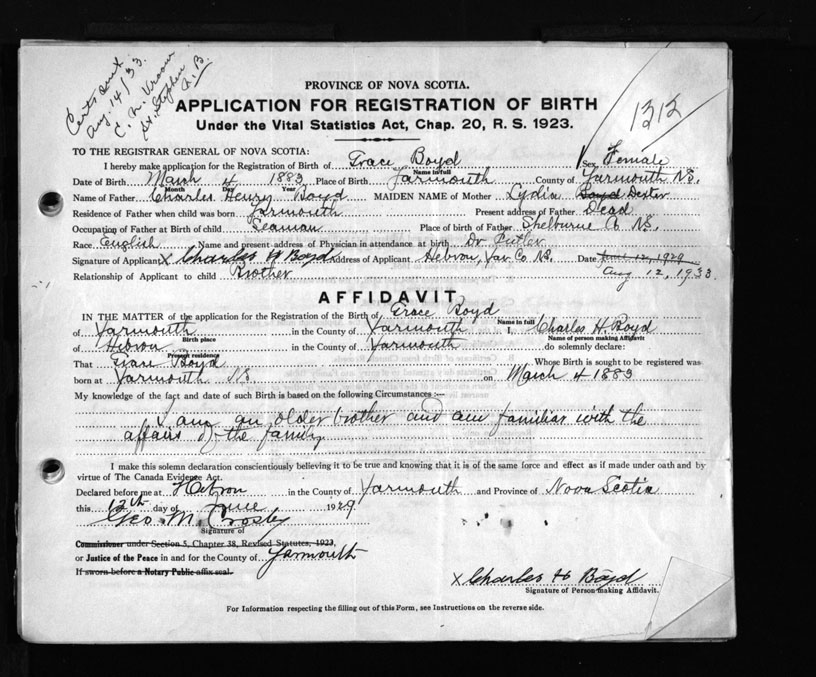 Certs sent
Aug. 14/33.
C. N. Vroom
St. Stephen
N. B.
1312
PROVINCE OF NOVA SCOTIA.
APPLICATION FOR REGISTRATION OF BIRTH
Under the Vital Statistics Act, Chap. 20, R. S. 1923.
TO THE REGISTRAR GENERAL OF NOVA SCOTIA:
I hereby make application for the Registration of Birth of Grace Boyd Sex Female
Name in full
Date of Birth March 4 1883 Place of Birth Yarmouth County of Yarmouth N.S.
Month Day Year
Name of Father Charles Henry Boyd MAIDEN NAME of Mother Lydia Boyd Dexter
Residence of Father when child was born Yarmouth Present address of Father Dead
Occupation of Father at Birth of child Seaman Place of birth of Father Shelburne Co N.S.
Race English Name and present address of Physician in attendance at birth Dr. Cutler
Signature of Applicant x Charles H Boyd Address of Applicant Hebron, Yar. Co. N.S. Date June 12, 1929
Relationship of Applicant to child Brother Aug 12, 1933
AFFIDAVIT
IN THE MATTER of the application for the Registration of the Birth of Grace Boyd
of Yarmouth in the County of Yarmouth Name in full I, Charles H Boyd
Birth place Name of person making Affidavit
of Hebron in the County of Yarmouth do solemnly declare:
Present residence
That Grace Boyd Whose Birth is sought to be registered was
born at Yarmouth N.S. on March 4 1883
My knowledge of the fact and date of such Birth is based on the following Circumstances :—
I am an older brother and am familiar with the
affairs of the family
I make this solemn declaration conscientiously believing it to be true and knowing that it is of the same force and effect as if made under oath and by
virtue of The Canada Evidence Act.
Declared before me at Hebron in the County of Yarmouth and Province of Nova Scotia
this 12th day of June 1929
Geo. M. Crosby
Signature of
Commissioner under Section 5, Chapter 38, Revised Statutes, 1923,
or Justice of the Peace in and for the County of Yarmouth
If sworn before a Notary Public affix seal.
x Charles H Boyd
Signature of Person making Affidavit.
For Information respecting the filling out of this Form, see Instructions on the reverse side.